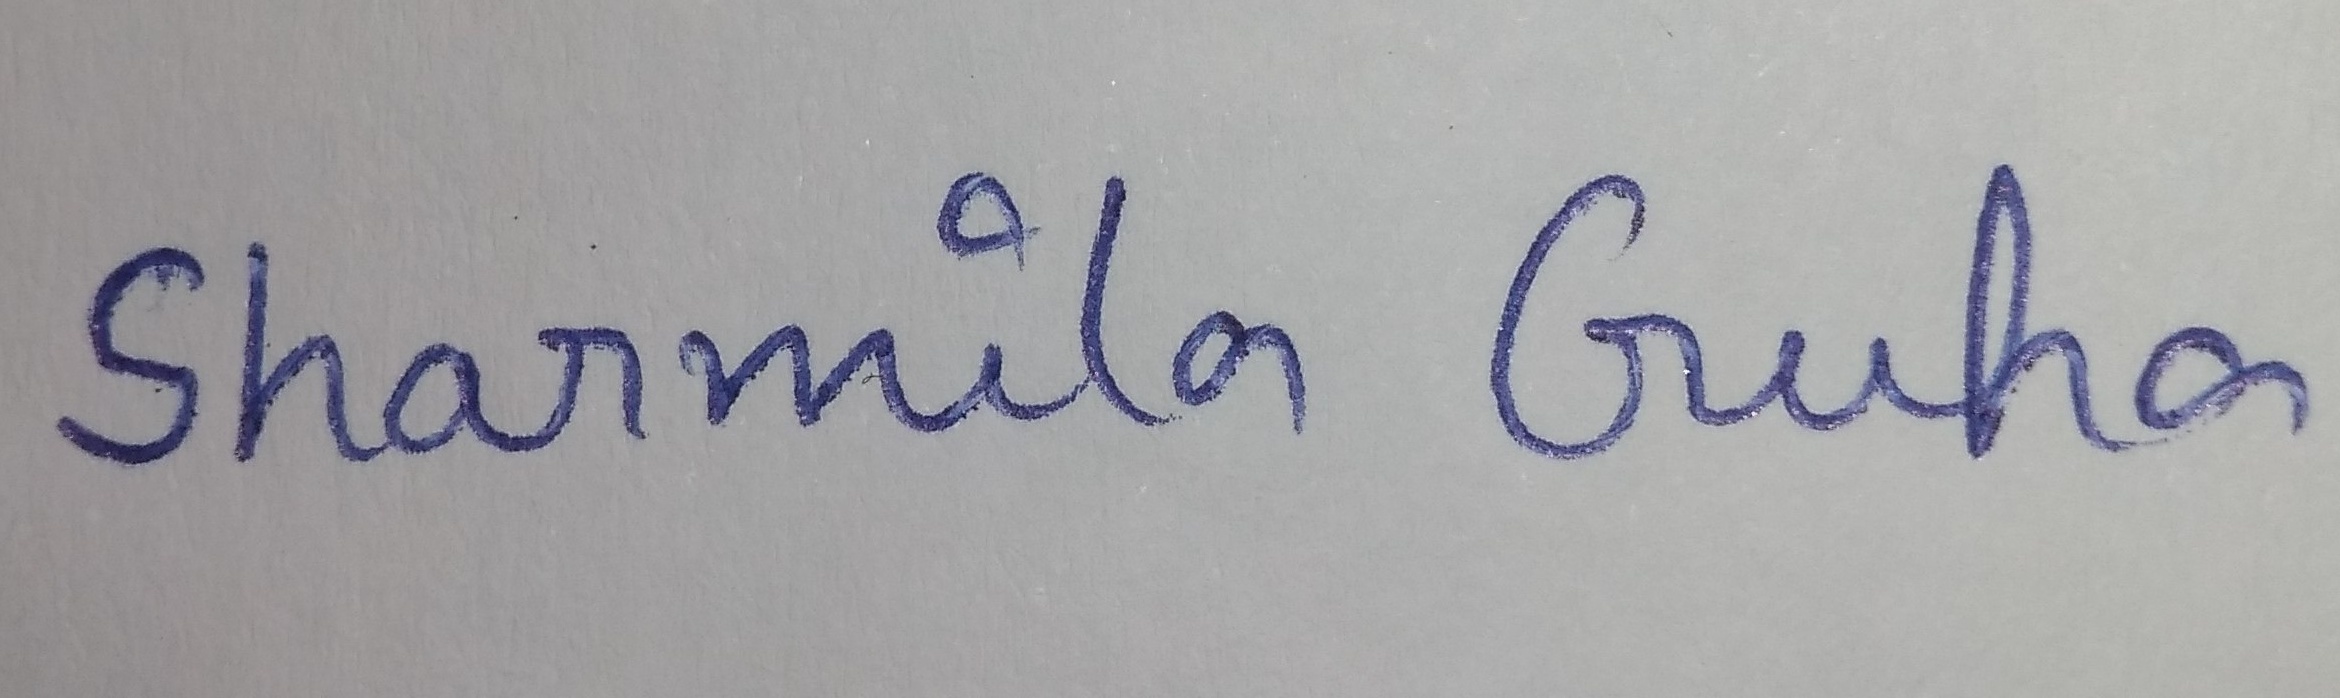 Sharmila Guha